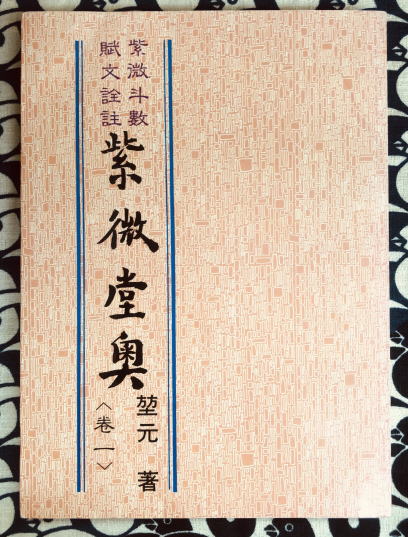 紫微斗數
賦文詮註
紫微堂奧
〈卷一〉
堃元 著